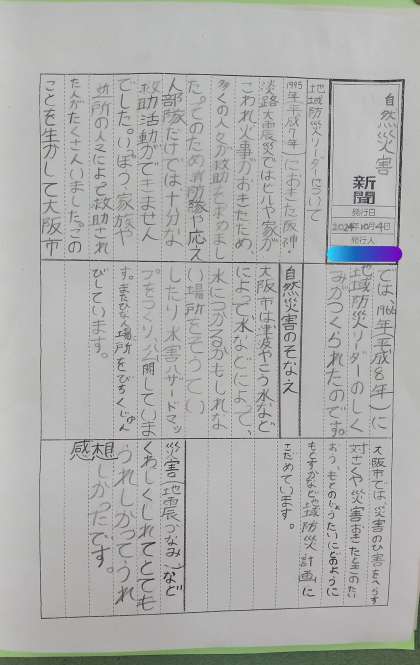 自然災害
新聞
発行日
2024年10月4日
発行人
地域防災リーダーについて
1995年(平成7年)におきた阪神・
淡路大震災ではビルや家が
こわれ火事がおきたため、
多くの人々が救助を求めまし
た。そのため消防隊や応え
人部隊だけでは十分な
救助活動ができません
でした。いぽう、家族や
近所の人々によって救助され
た人がたくさんいました。この
ことを生かして大阪市
では、1966年(平成8年)に
地域防災リーダーのしく
みがつくられたのです。
自然災害のそなえ
大阪市は津波やこう水など
によって水などによって、
水につかるかもしれな
い場所をそうてい
したり水害ハザードマッ
プをつくり、公開していま
す。またひなん場所をびちくじゅん
びしています。
大阪市では、災害のひ害をへらす
対さくや災害おきたときのたい
おう、もとのじょうたいにどのように
もどすかなど地域防災計画に
まとめています。
災害(地震、つなみ)など
くわしくしれてとても
うれしかってうれ
しかったです。
感想